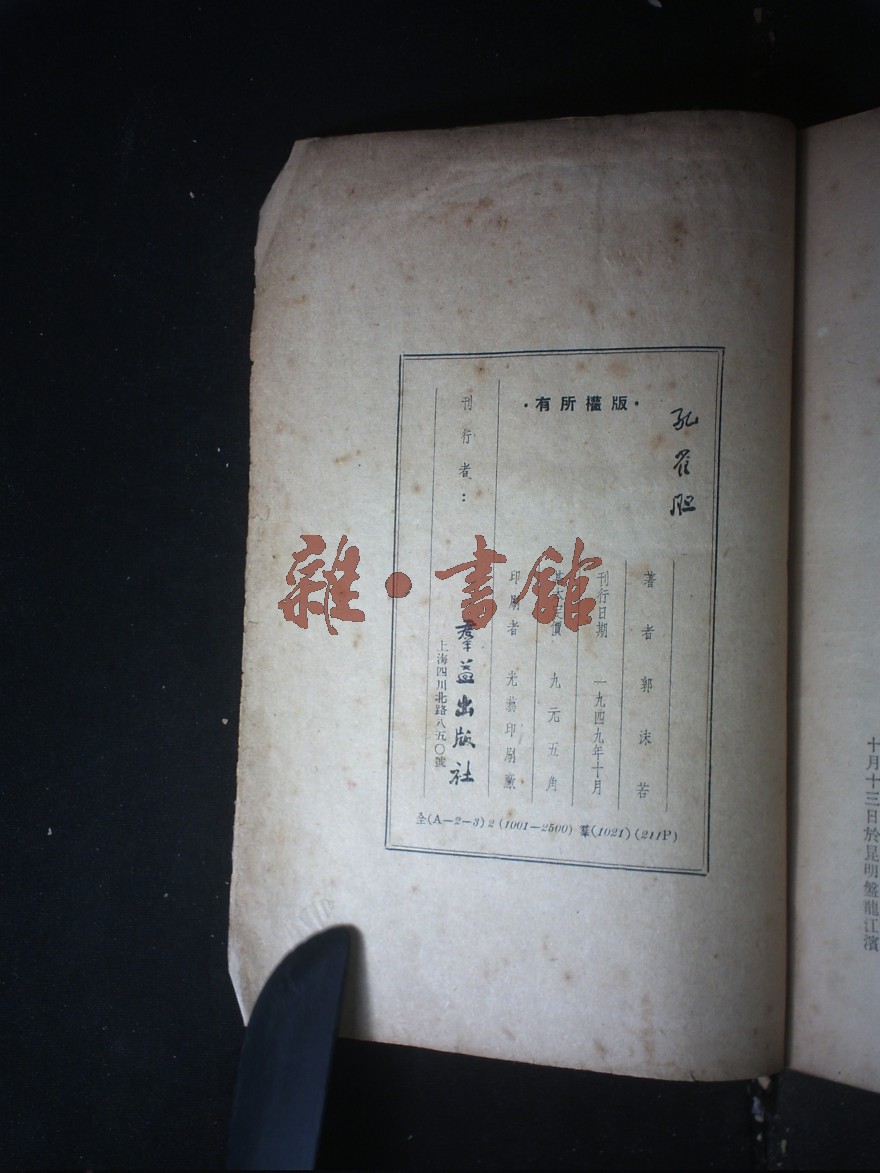 十月十三日於昆明盤龍江濱
孔雀胆
·版權所有·
著者 郭沫若
刊行日期 一九四九年十月
基本定價 九元五角
印刷者 光藝印刷廠
刊行者：
羣益出版社
上海四川北路八五〇號
全(A—2—3)2(1001—2500) 羣(1021)(211P)
雜·書館